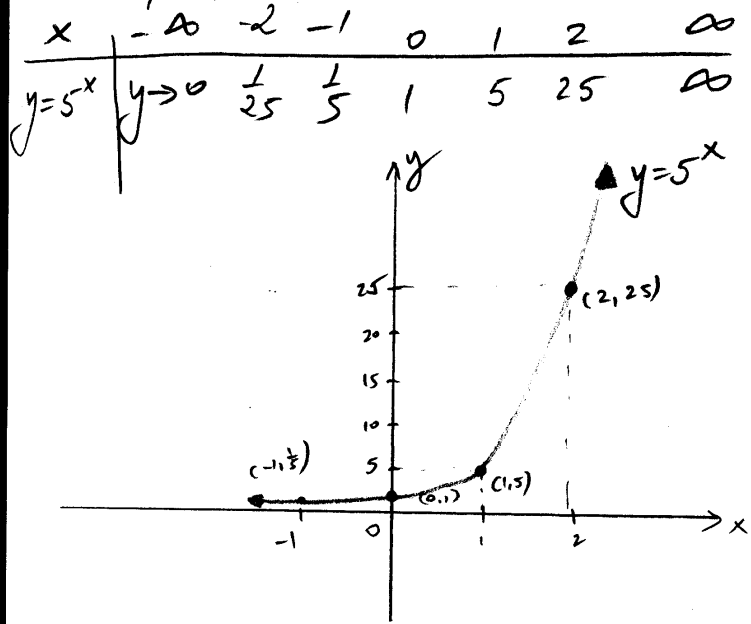 x -∞ -2 -1 0 1 2 ∞
y=5^x y→0 1/25 1/5 1 5 25 ∞
y
y=5^x
25
(2, 25)
20
15
10
(-1, 1/5)
5
(0,1)
(1,5)
-1 0 1 2 x